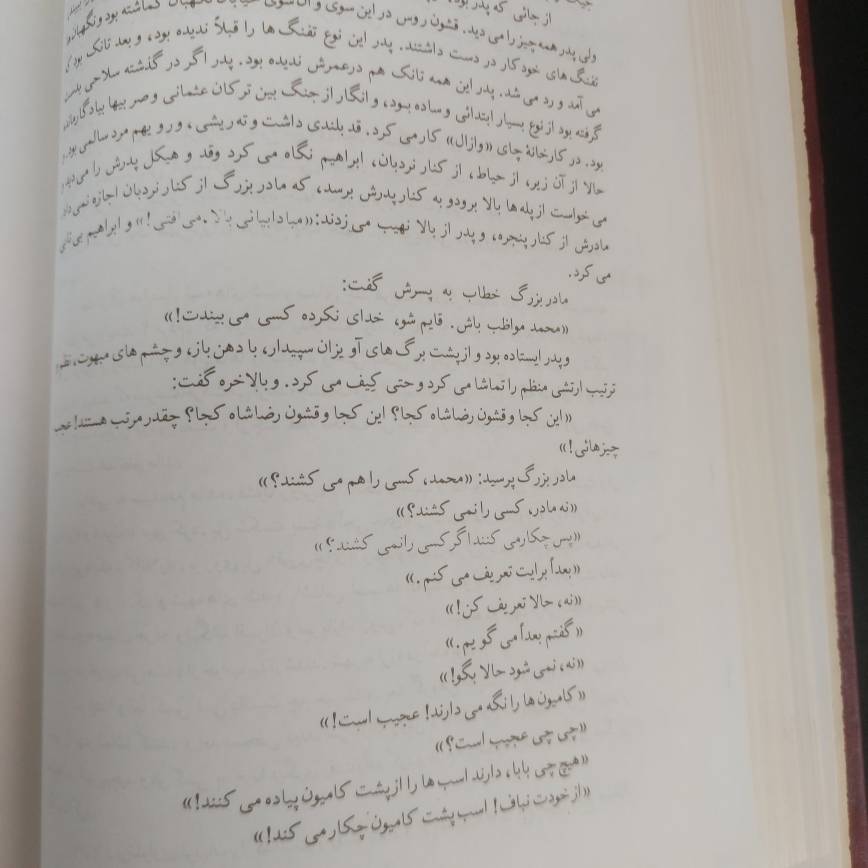 از جائی که پدر بود،
ولی پدر همه چیز را می دید. قشون روس در این سوی و آن سوی خیابان نگهبان گماشته بود و نگهبان
تفنگ های خود کار در دست داشتند. پدر این نوع تفنگ ها را قبلاً ندیده بود، و بعد تانک بود
می آمد و رد می شد. پدر این همه تانک هم درعمرش ندیده بود. پدر اگر در گذشته سلاحی بدست
گرفته بود از نوع بسیار ابتدائی و ساده بود، و انگار از جنگ بین ترکان عثمانی و صر بها بیادگار مانده
بود. در کارخانهٔ چای «وازال» کار می کرد. قد بلندی داشت و ته ریشی، و رو یهم مرد سالمی بود.
حالا از آن زیر، از حیاط، از کنار نردبان، ابراهیم نگاه می کرد وقد و هیکل پدرش را می دید
می خواست از پله ها بالا برود و به کنار پدرش برسد، که مادر بزرگ از کنار نردبان اجازه نمی داد
مادرش از کنار پنجره، و پدر از بالا نهیب می زدند: «مبادا بیائی بالا. می افتی!» و ابراهیم بی تابی
می کرد.
مادر بزرگ خطاب به پسرش گفت:
«محمد مواظب باش. قایم شو، خدای نکرده کسی می بیندت!»
و پدر ایستاده بود و از پشت برگ های آو یزان سپیدار، با دهن باز، و چشم های مبهوت،
ترتیب ارتشی منظم را تماشا می کرد و حتی کیف می کرد. و بالاخره گفت:
«این کجا و قشون رضاشاه کجا؟ این کجا و قشون رضاشاه کجا؟ چقدر مرتب هستند! عجب
چیزهائی!»
مادر بزرگ پرسید: «محمد، کسی را هم می کشند؟»
«نه مادر، کسی را نمی کشند؟»
«پس چکار می کنند اگر کسی را نمی کشند؟»
«بعداً برایت تعریف می کنم.»
«نه، حالا تعریف کن!»
«گفتم بعداً می گو یم.»
«نه، نمی شود حالا بگو!»
«کامیون ها را نگه می دارند! عجیب است!»
«چی چی عجیب است؟»
«هیچ چی بابا، دارند اسب ها را از پشت کامیون پیاده می کنند!»
«از خودت نباف! اسب پشت کامیون چکار می کند!»